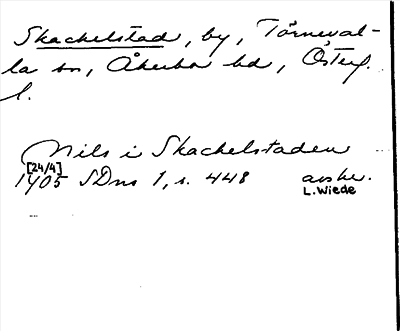 Skachelstad, by, Törneval-
la sn, Åkerbo hd, Östergl.
l.
Nils i Skachelstaden
[24/4]
1405 SDns 1, s. 448 avskr.
L. Wiede